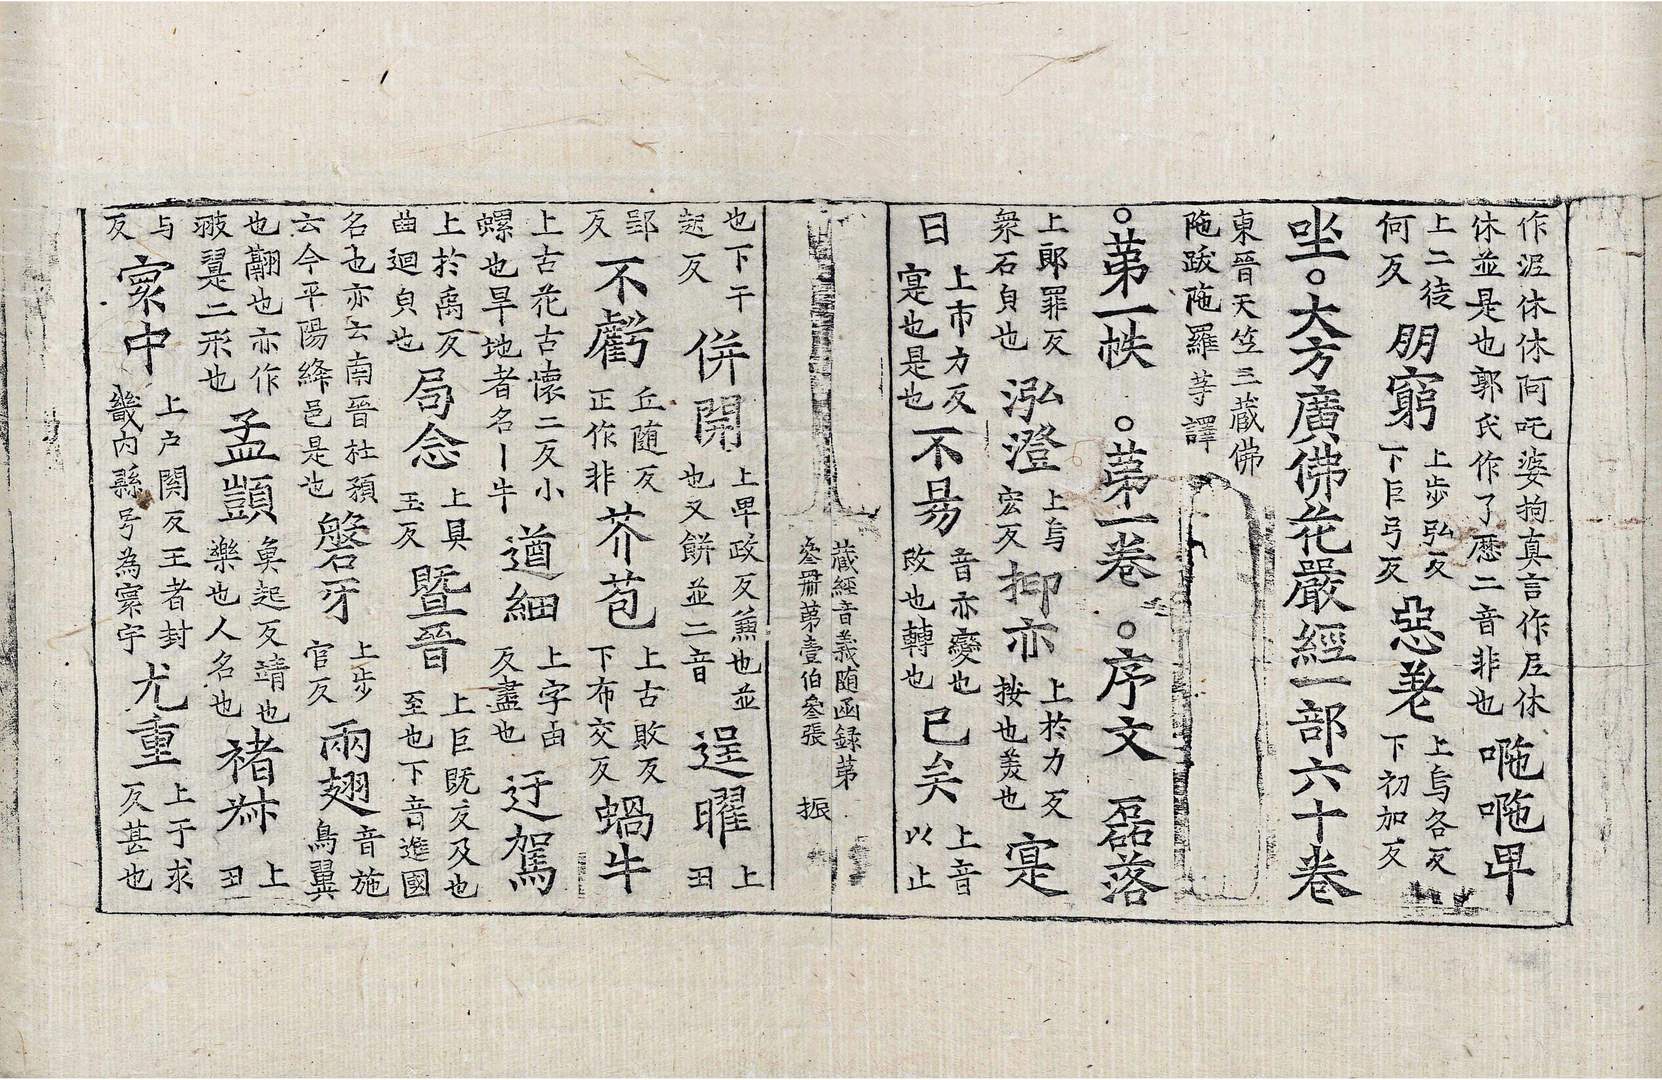 作涩休休休阿吒婆拘真言作𡰱休
休並是也郭氏作了歷二音非也
㖂㖂𤰞
上二徒
何反
朋窮
上步弘反
下巨弓反
惡𦍒
上烏各反
下初加反
坐。大方廣佛花嚴經一部六十卷
東晉天竺三藏佛
陁跋陁羅等譯
。苐一帙　。苐一卷　。序文　磊落
上郎罪反
衆石㒵也
泓澄
上烏
宏反
抑亦
上於力反
按也美也
寔
曰
上市力反
寔也是也
不昜
音亦變也
改也轉也
已矣
上音
以止
藏經音義随函録苐
叄冊苐壹伯叄張　振
也下干
起反
併開
上卑政反兼也並
也又餅並二音
逞曜
上
丑
郢
反
不虧
丘随反
正作非
芥苞
上古敗反
下布交反
蝸牛
上古花古懷二反小
螺也旱地者名丨牛
遒細
上字由
反盡也
迂駕
上於禹反
曲迴㒵也
局念
上具
玉反
暨晉
上巨既反及也
至也下音進國
名也亦云南晉杜預
云今平陽絳邑是也
磐牙
上步
官反
兩翅
音施
鳥翼
也翮也亦作
翄翨二形也
孟顗
魚起反靖也
樂也人名也
褚叔
上
丑
与
反
寰中
上户関反王者封
畿内縣号為寰宇
尤重
上于求
反甚也